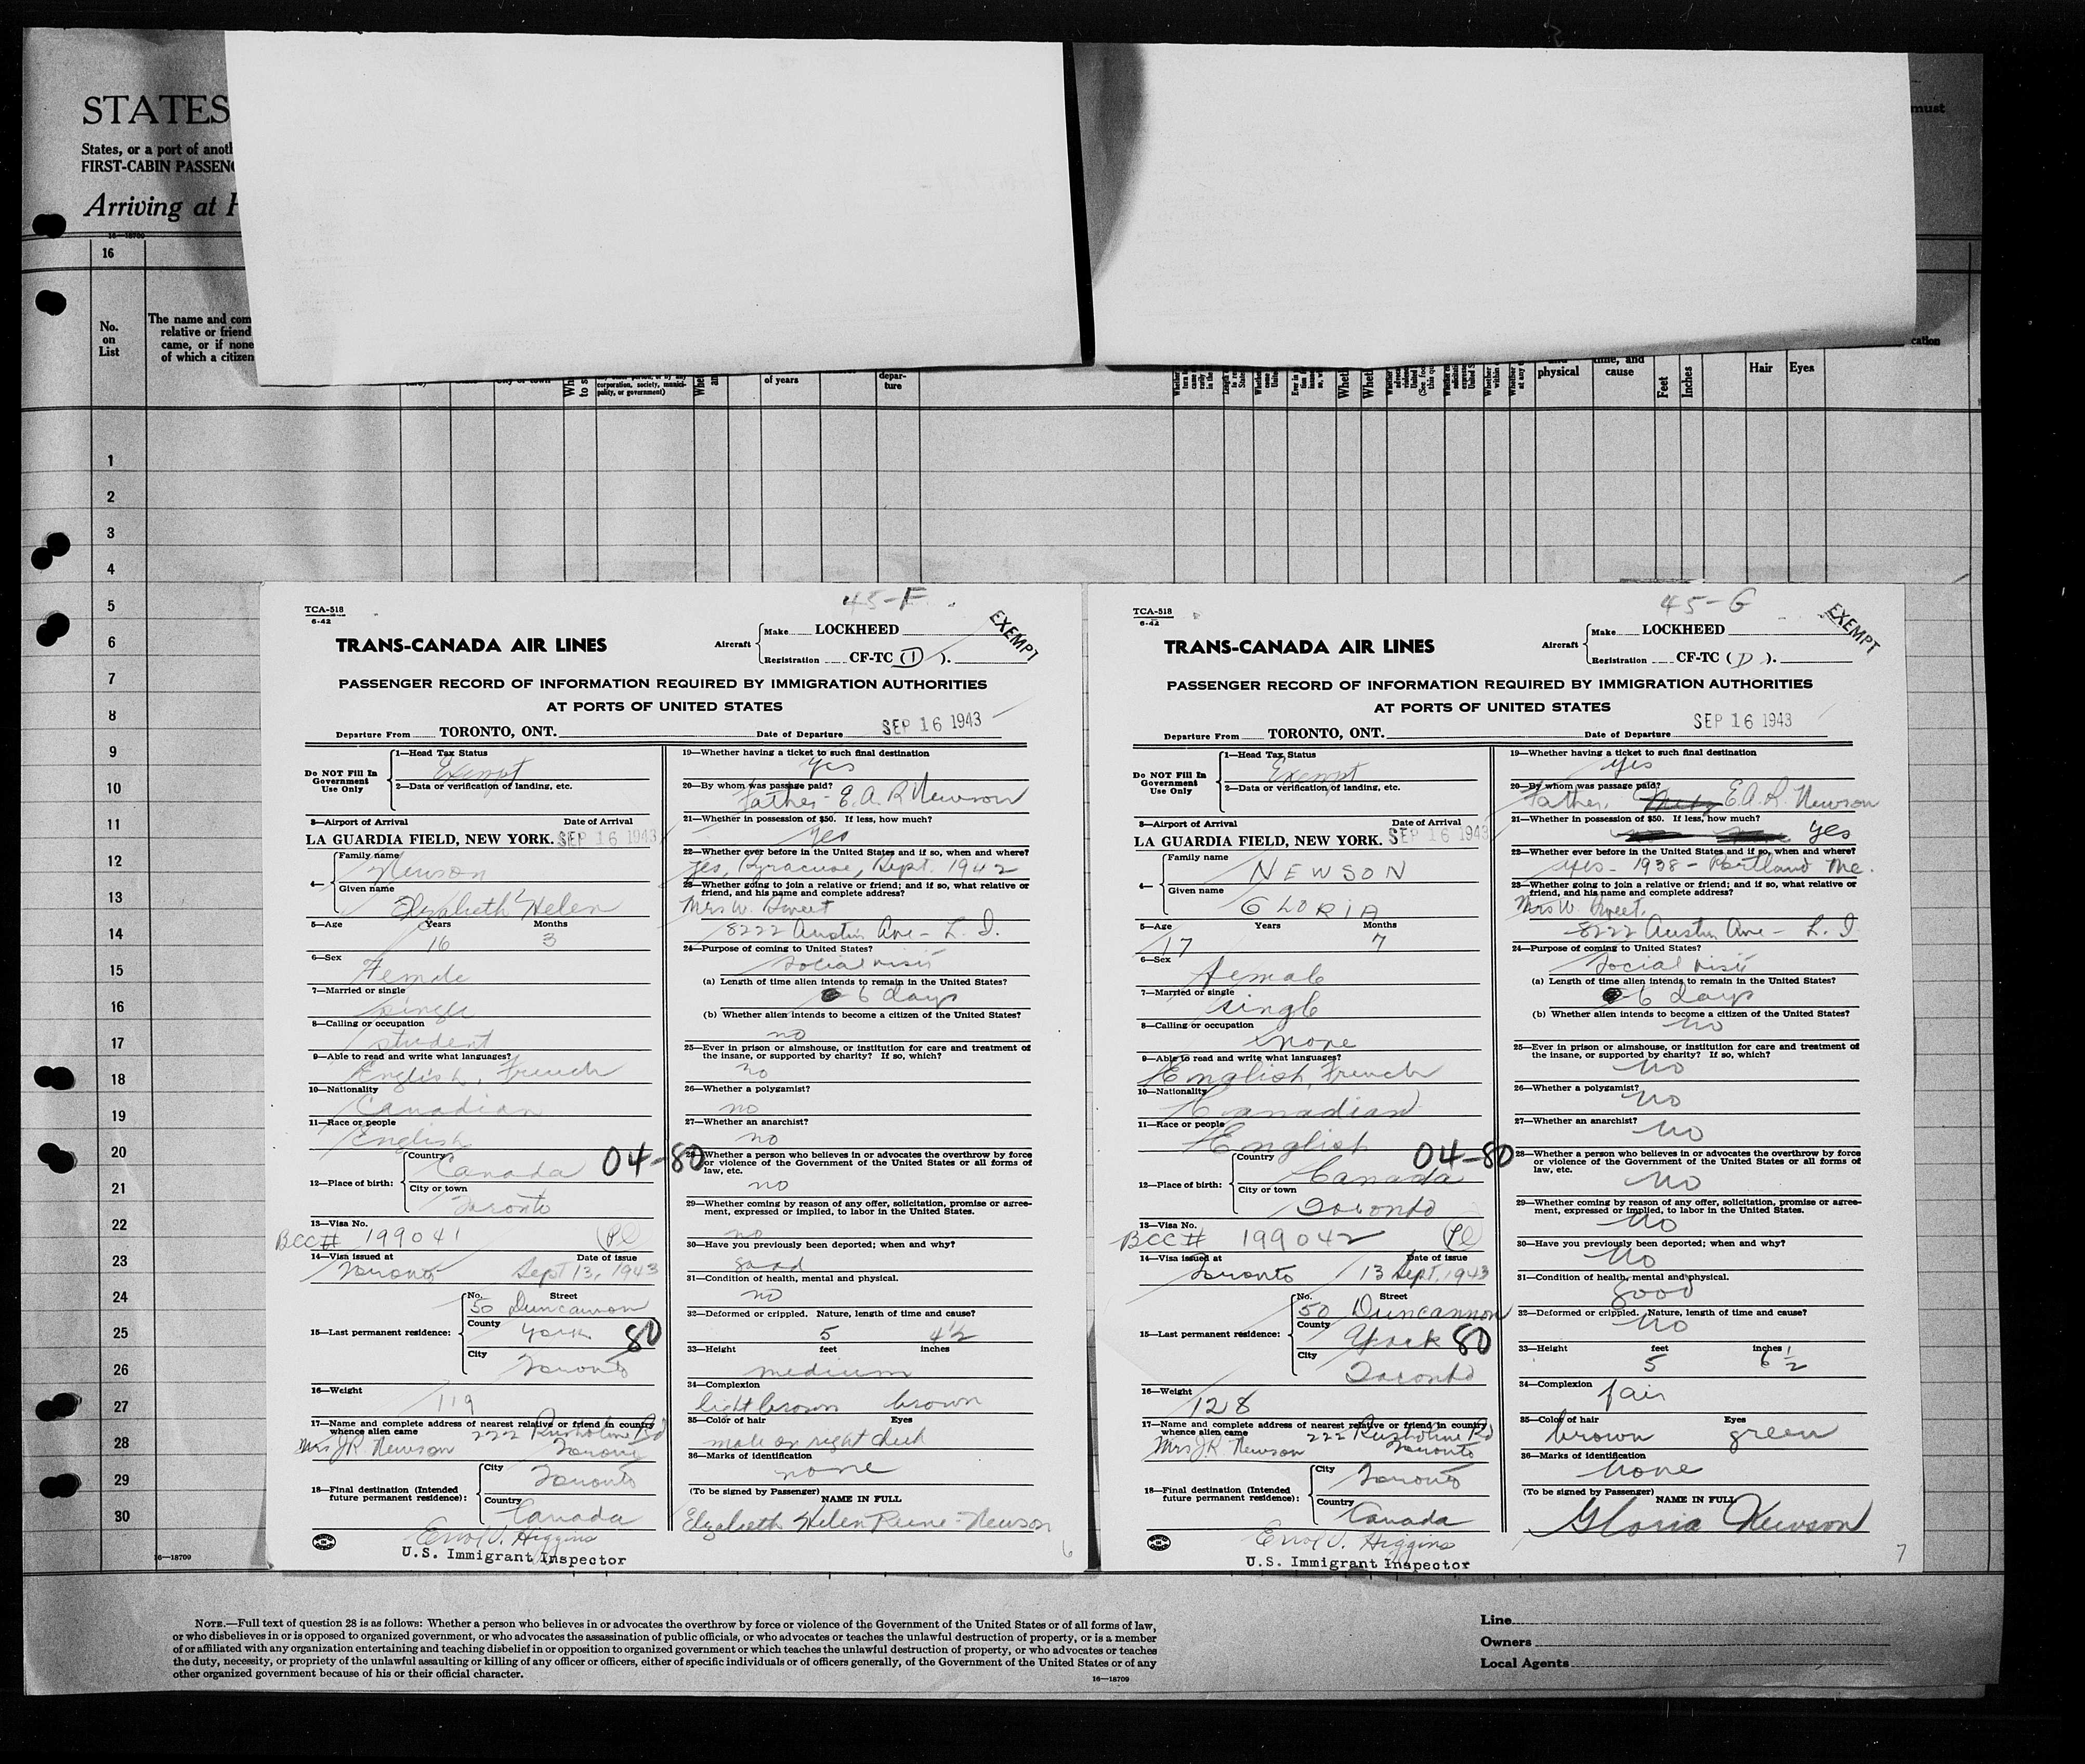 STATES
States, or a port of anoth
FIRST-CABIN PASSENG
Arriving at H
must
16—18709
16
No.
on
List
The name and com
relative or friend
came, or if none
of which a citizen
corporation, society, munici-
pality, or government)
of years
depar-
ture
physical
time, and
cause
Feet
Inches
Hair
Eyes
cation
1
2
3
4
5
6
7
8
9
10
11
12
13
14
15
16
17
18
19
20
21
22
23
24
25
26
27
28
29
30
16—18709
45-F
TCA-518
6-42
TRANS-CANADA AIR LINES
Aircraft
Make LOCKHEED
Registration CF-TC ( ).
EXEMPT
PASSENGER RECORD OF INFORMATION REQUIRED BY IMMIGRATION AUTHORITIES
AT PORTS OF UNITED STATES
Departure From TORONTO, ONT. Date of Departure SEP 16 1943
Do NOT Fill In
Government
Use Only
1—Head Tax Status
Exempt
2—Data or verification of landing, etc.
3—Airport of Arrival Date of Arrival
LA GUARDIA FIELD, NEW YORK. SEP 16 1943
4—
Family name
Newson
Given name
Elizabeth Helen
5—Age Years Months
16 3
6—Sex
Female
7—Married or single
single
8—Calling or occupation
student
9—Able to read and write what languages?
English, French
10—Nationality
Canadian
11—Race or people
English
12—Place of birth:
Country
Canada 04-80
City or town
Toronto
13—Visa No.
BCC# 199041
14—Visa issued at Date of issue
Toronto Sept 13, 1943
15—Last permanent residence:
No. Street
50 Duncannon
County
York 80
City
Toronto
16—Weight
119
17—Name and complete address of nearest relative or friend in country
whence alien came 222 Rusholme Rd
Mrs J.R. Newson Toronto
18—Final destination (Intended
future permanent residence):
City
Toronto
Country
Canada
Errol V. Higgins
U.S. Immigrant Inspector
19—Whether having a ticket to such final destination
yes
20—By whom was passage paid?
Father - E. A. R Newson
21—Whether in possession of $50. If less, how much?
yes
22—Whether ever before in the United States and if so, when and where?
yes, Syracuse, Sept. 1942
23—Whether going to join a relative or friend; and if so, what relative or
friend, and his name and complete address?
Mrs W. Sweet
8222 Austin Ave - L. I.
24—Purpose of coming to United States?
social visit
(a) Length of time alien intends to remain in the United States?
6 days
(b) Whether alien intends to become a citizen of the United States?
no
25—Ever in prison or almshouse, or institution for care and treatment of
the insane, or supported by charity? If so, which?
no
26—Whether a polygamist?
no
27—Whether an anarchist?
no
28—Whether a person who believes in or advocates the overthrow by force
or violence of the Government of the United States or all forms of
law, etc.
no
29—Whether coming by reason of any offer, solicitation, promise or agree-
ment, expressed or implied, to labor in the United States.
no
30—Have you previously been deported; when and why?
good
31—Condition of health, mental and physical.
no
32—Deformed or crippled. Nature, length of time and cause?
5 4½
33—Height feet inches
medium
34—Complexion
light brown brown
35—Color of hair Eyes
mole on right cheek
36—Marks of identification
none
(To be signed by Passenger)
NAME IN FULL
Elizabeth Helen Newson
6
45-G
TCA-518
6-42
TRANS-CANADA AIR LINES
Aircraft
Make LOCKHEED
Registration CF-TC (D).
EXEMPT
PASSENGER RECORD OF INFORMATION REQUIRED BY IMMIGRATION AUTHORITIES
AT PORTS OF UNITED STATES
Departure From TORONTO, ONT. Date of Departure SEP 16 1943
Do NOT Fill In
Government
Use Only
1—Head Tax Status
Exempt
2—Data or verification of landing, etc.
3—Airport of Arrival Date of Arrival
LA GUARDIA FIELD, NEW YORK. SEP 16 1943
4—
Family name
NEWSON
Given name
GLORIA
5—Age Years Months
17 7
6—Sex
female
7—Married or single
single
8—Calling or occupation
none
9—Able to read and write what languages?
English, French
10—Nationality
Canadian
11—Race or people
English
12—Place of birth:
Country
Canada 04-80
City or town
Toronto
13—Visa No.
BCC# 199042
14—Visa issued at Date of issue
Toronto 13 Sept, 1943
15—Last permanent residence:
No. Street
50 Duncannon
County
York 80
City
Toronto
16—Weight
128
17—Name and complete address of nearest relative or friend in country
whence alien came 222 Rusholme Rd
Mrs J.R. Newson Toronto
18—Final destination (Intended
future permanent residence):
City
Toronto
Country
Canada
Errol V. Higgins
U.S. Immigrant Inspector
19—Whether having a ticket to such final destination
yes
20—By whom was passage paid?
Father, E.A.R. Newson
21—Whether in possession of $50. If less, how much?
yes
22—Whether ever before in the United States and if so, when and where?
yes - 1938 - Portland Me.
23—Whether going to join a relative or friend; and if so, what relative or
friend, and his name and complete address?
Mrs W. Sweet,
8222 Austin Ave - L. I
24—Purpose of coming to United States?
social visit
(a) Length of time alien intends to remain in the United States?
6 days
(b) Whether alien intends to become a citizen of the United States?
no
25—Ever in prison or almshouse, or institution for care and treatment of
the insane, or supported by charity? If so, which?
no
26—Whether a polygamist?
no
27—Whether an anarchist?
no
28—Whether a person who believes in or advocates the overthrow by force
or violence of the Government of the United States or all forms of
law, etc.
no
29—Whether coming by reason of any offer, solicitation, promise or agree-
ment, expressed or implied, to labor in the United States.
no
30—Have you previously been deported; when and why?
no
31—Condition of health, mental and physical.
good
32—Deformed or crippled. Nature, length of time and cause?
no
33—Height feet inches
5 6½
34—Complexion
fair
35—Color of hair Eyes
brown green
36—Marks of identification
none
(To be signed by Passenger)
NAME IN FULL
Gloria Newson
7
NOTE.—Full text of question 28 is as follows: Whether a person who believes in or advocates the overthrow by force or violence of the Government of the United States or of all forms of law,
or who disbelieves in or is opposed to organized government, or who advocates the assassination of public officials, or who advocates or teaches the unlawful destruction of property, or is a member
of or affiliated with any organization entertaining and teaching disbelief in or opposition to organized government or which teaches the unlawful destruction of property, or who advocates or teaches
the duty, necessity, or propriety of the unlawful assaulting or killing of any officer or officers, either of specific individuals or of officers generally, of the Government of the United States or of any
other organized government because of his or their official character.
16—18709
Line
Owners
Local Agents